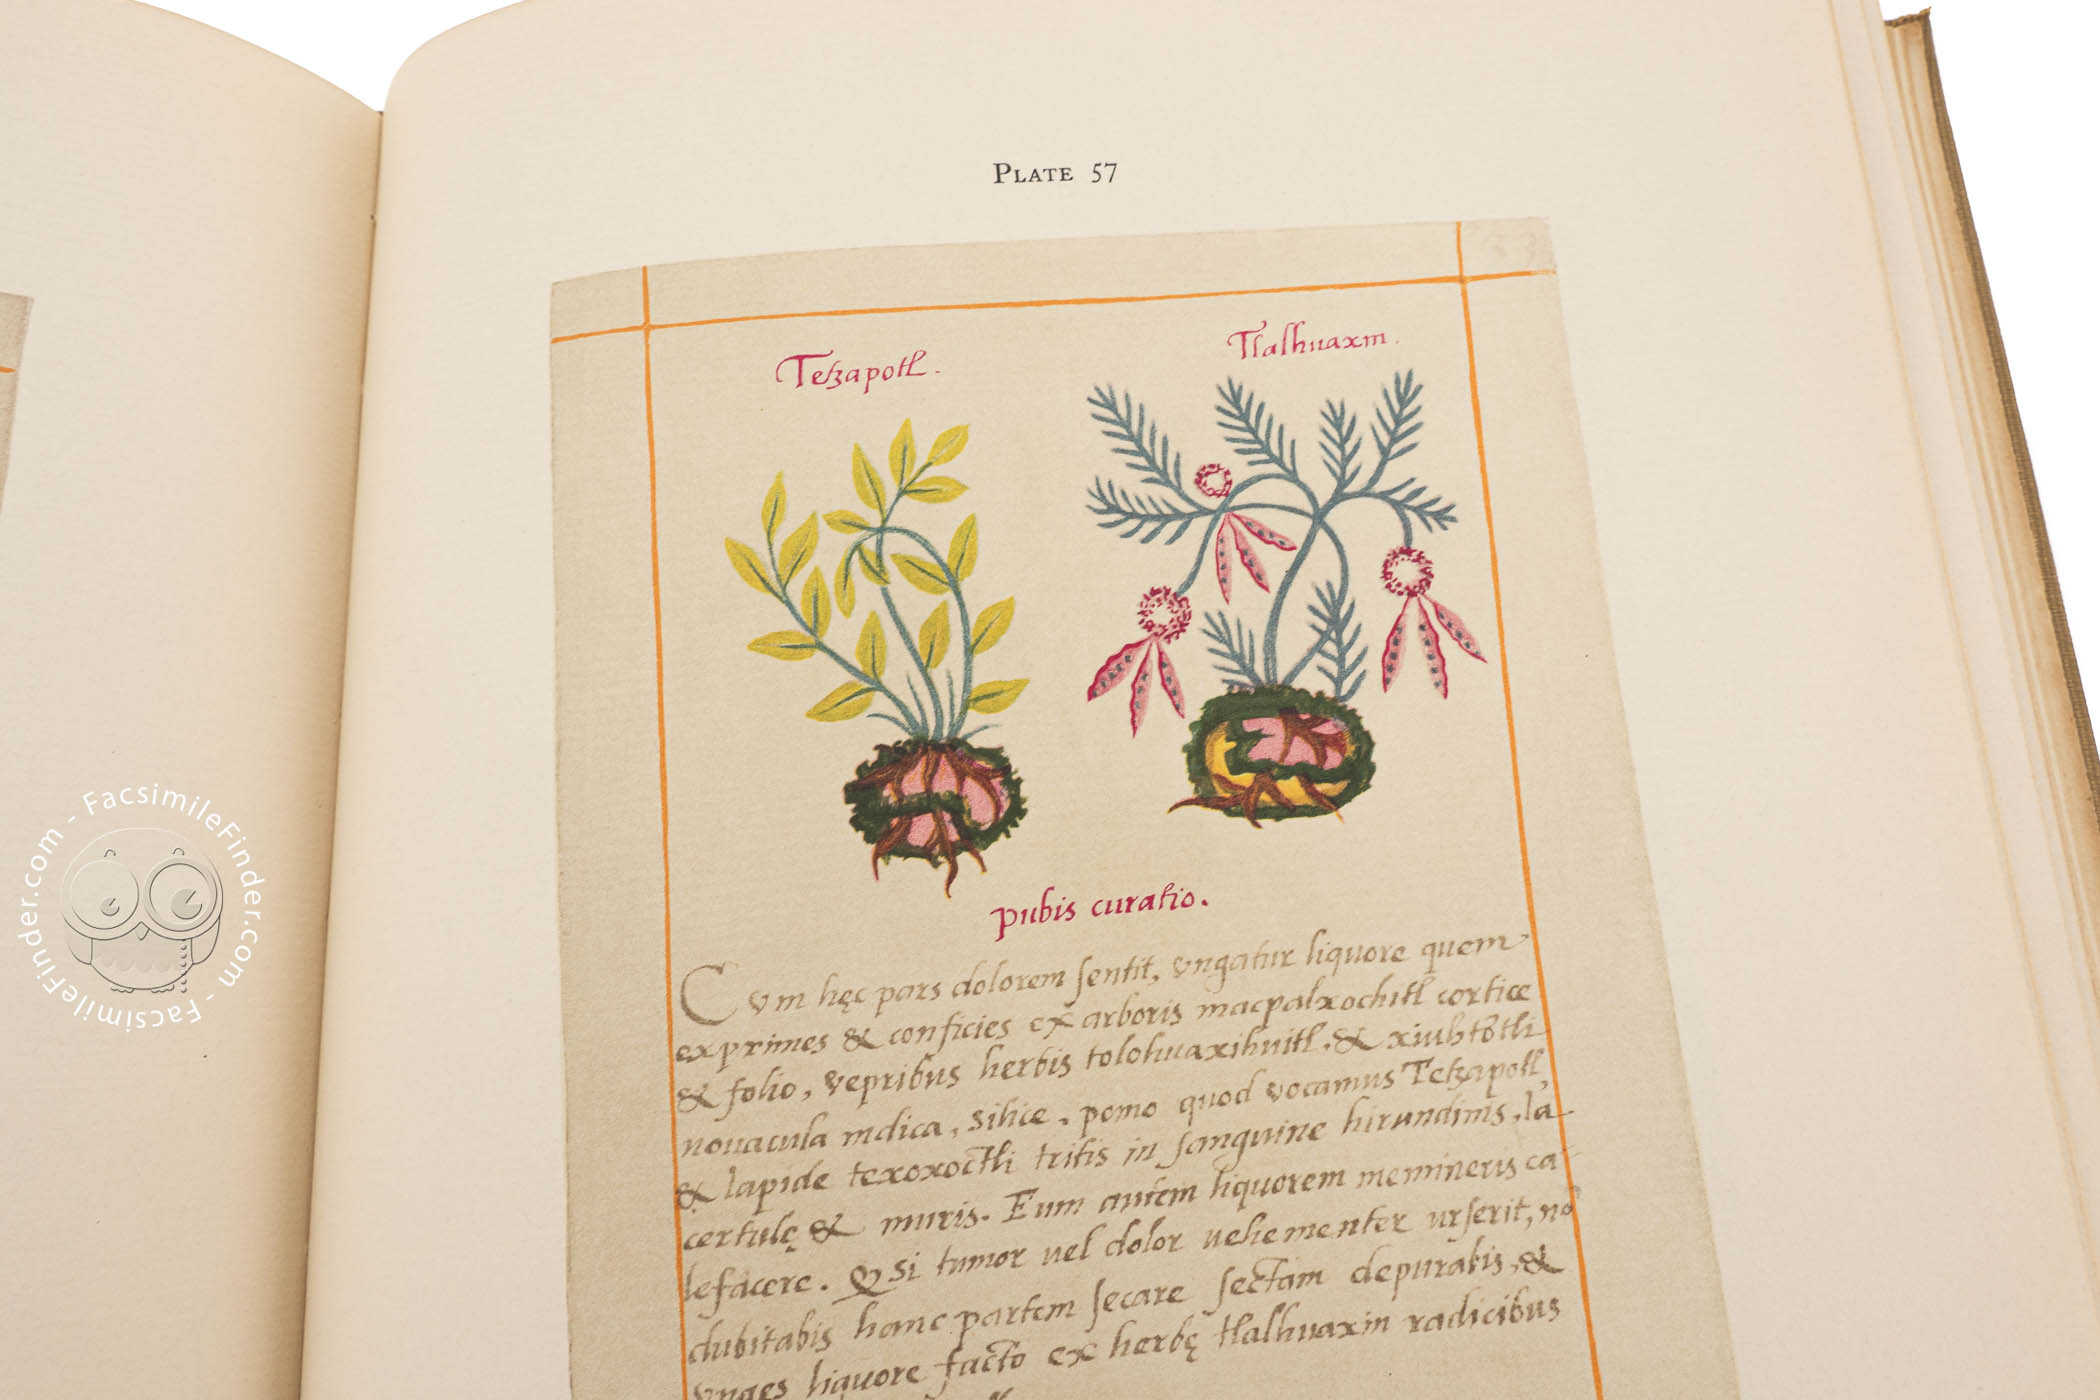 PLATE 57
Tetzapotl.
Tlalhuaxin.
pubis curatio.
Cvm hęc pars dolorem sentit, vngatur liquore quem
exprimes & conficies ex arboris macpalxochitl cortice
& folio, vepribus herbis tolohuaxihuitl, & xiuhtōtli
nouacula indica, silice, pomo quod vocamus Tetzapotl,
& lapide texoxoctli tritis in sanguine hirundinis, la-
certulę & muris. Eum autem liquorem memineris ca-
lefacere. Qsi tumor vel dolor vehementer urserit, nō
dubitabis hanc partem secare sectam depurabis, &
vnges liquore facto ex herbę tlalhuaxin radicibus
FacsimileFinder.com - FacsimileFinder.com -